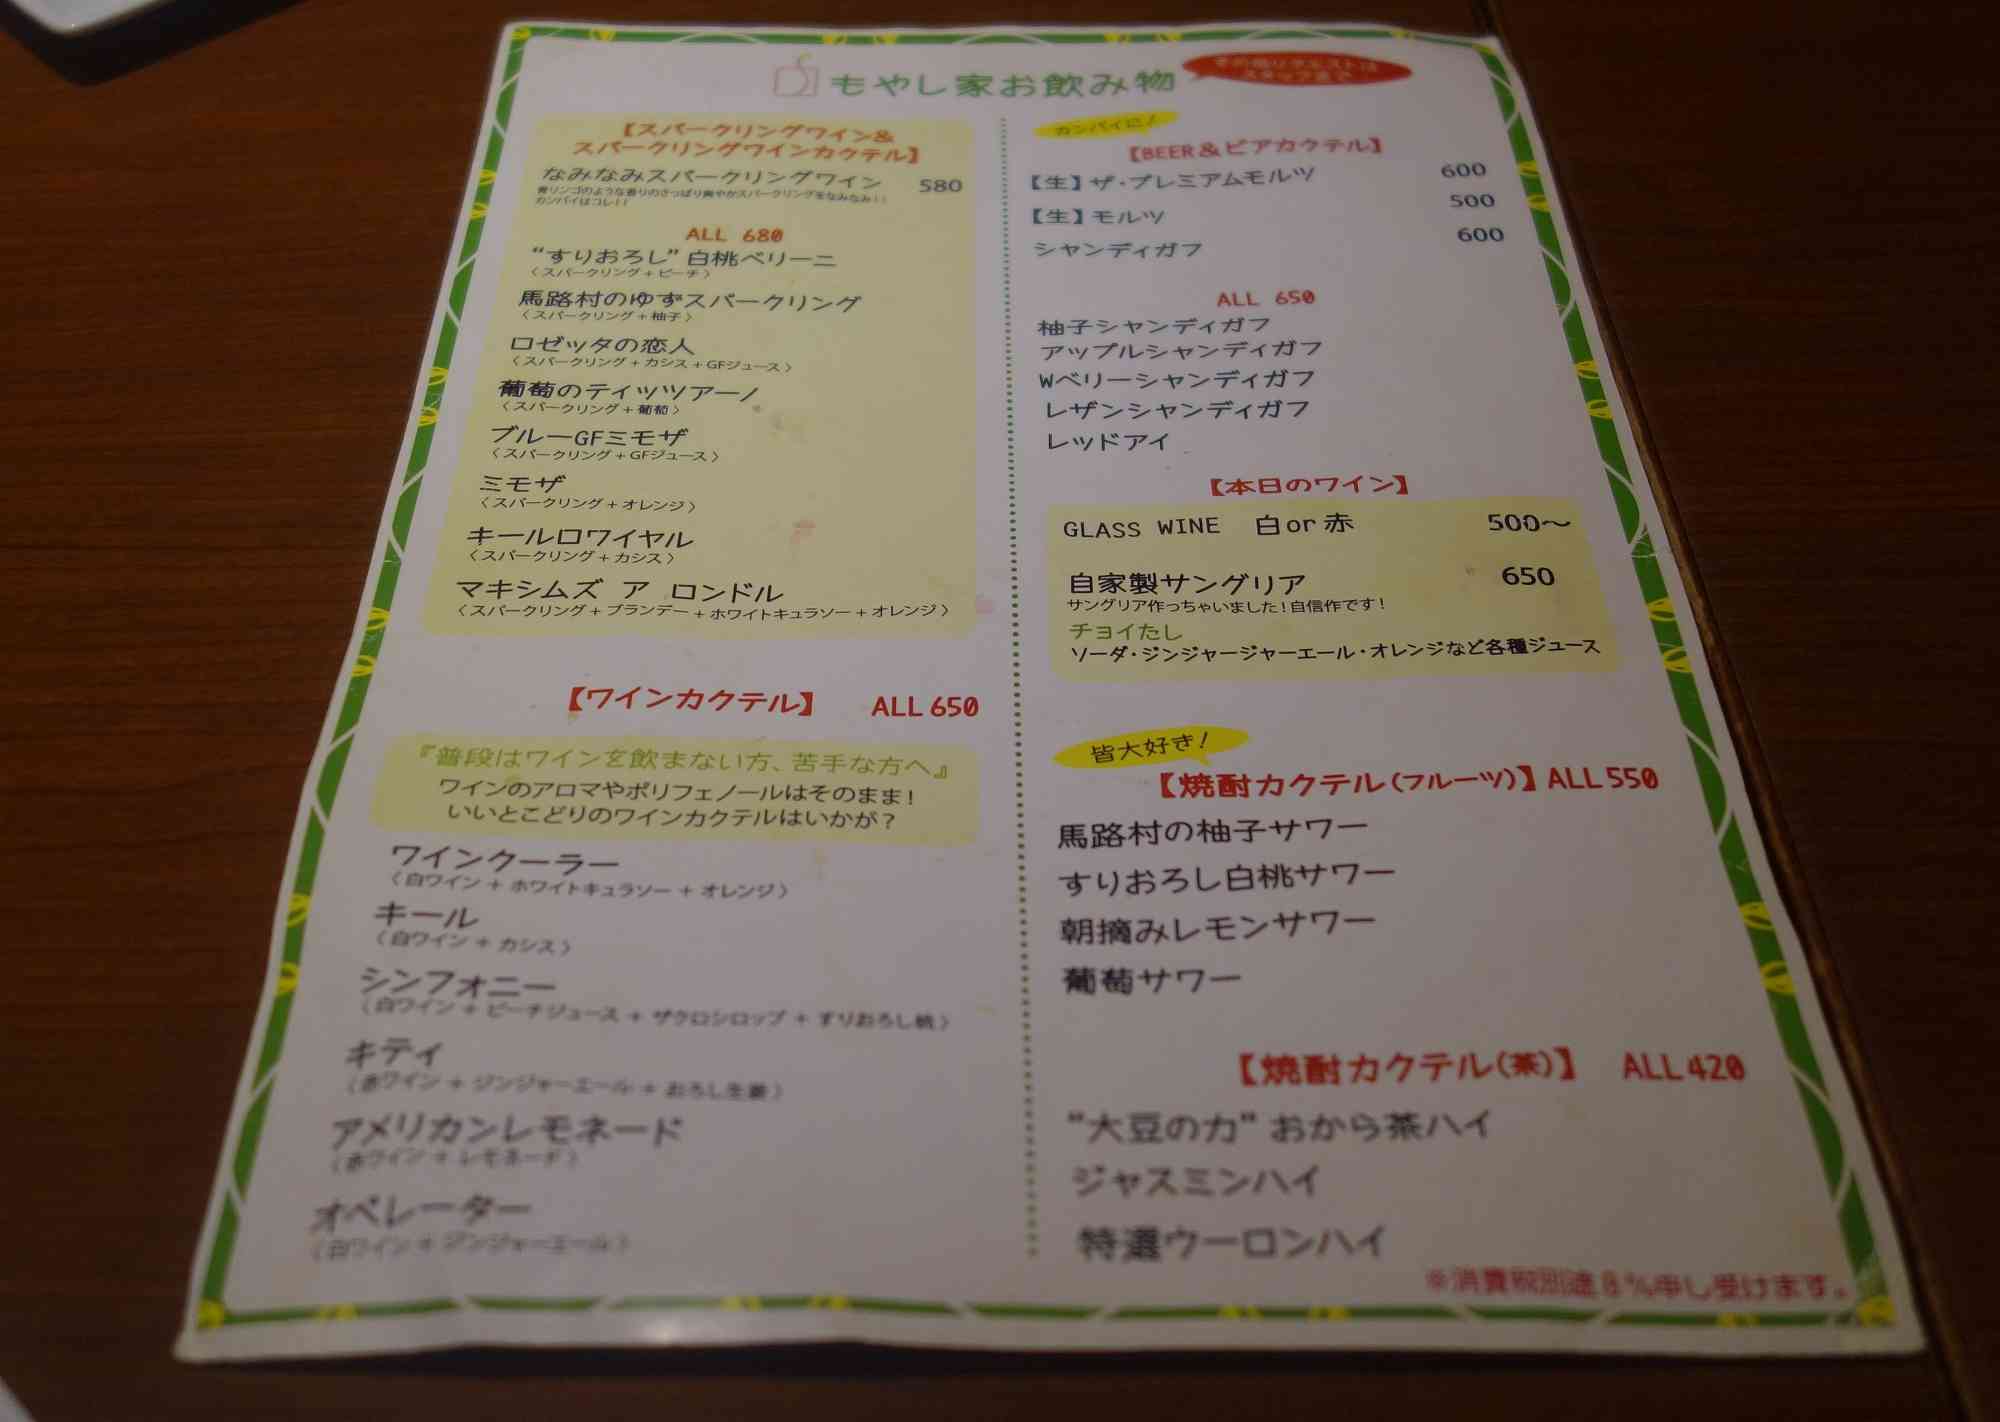 もやし家お飲み物
その他リクエストは
スタッフまで
【スパークリングワイン&
スパークリングワインカクテル】
なみなみスパークリングワイン 580
青リンゴのような香りのさっぱり爽やかスパークリングをなみなみ!!
カンパイはコレ!!
ALL 680
“すりおろし”白桃ベリーニ
〈スパークリング+ピーチ〉
馬路村のゆずスパークリング
〈スパークリング+柚子〉
ロゼッタの恋人
〈スパークリング+カシス+GFジュース〉
葡萄のティッツアーノ
〈スパークリング+葡萄〉
ブルーGFミモザ
〈スパークリング+GFジュース〉
ミモザ
〈スパークリング+オレンジ〉
キールロワイヤル
〈スパークリング+カシス〉
マキシムズ ア ロンドル
〈スパークリング+ブランデー+ホワイトキュラソー+オレンジ〉
【ワインカクテル】 ALL 650
『普段はワインを飲まない方、苦手な方へ』
ワインのアロマやポリフェノールはそのまま!
いいとこどりのワインカクテルはいかが?
ワインクーラー
〈白ワイン+ホワイトキュラソー+オレンジ〉
キール
〈白ワイン+カシス〉
シンフォニー
〈白ワイン+ピーチジュース+ザクロシロップ+すりおろし桃〉
キティ
〈赤ワイン+ジンジャーエール+おろし生姜〉
アメリカンレモネード
〈赤ワイン+レモネード〉
オペレーター
〈白ワイン+ジンジャーエール〉
カンパイに!
【BEER&ビアカクテル】
【生】ザ・プレミアムモルツ 600
【生】モルツ 500
シャンディガフ 600
ALL 650
柚子シャンディガフ
アップルシャンディガフ
Wベリーシャンディガフ
レザンシャンディガフ
レッドアイ
【本日のワイン】
GLASS WINE 白or赤 500〜
自家製サングリア 650
サングリア作っちゃいました!自信作です!
チョイたし
ソーダ・ジンジャージャーエール・オレンジなど各種ジュース
皆大好き!
【焼酎カクテル(フルーツ)】ALL 550
馬路村の柚子サワー
すりおろし白桃サワー
朝摘みレモンサワー
葡萄サワー
【焼酎カクテル(茶)】 ALL 420
“大豆の力”おから茶ハイ
ジャスミンハイ
特選ウーロンハイ
※消費税別途8%申し受けます。